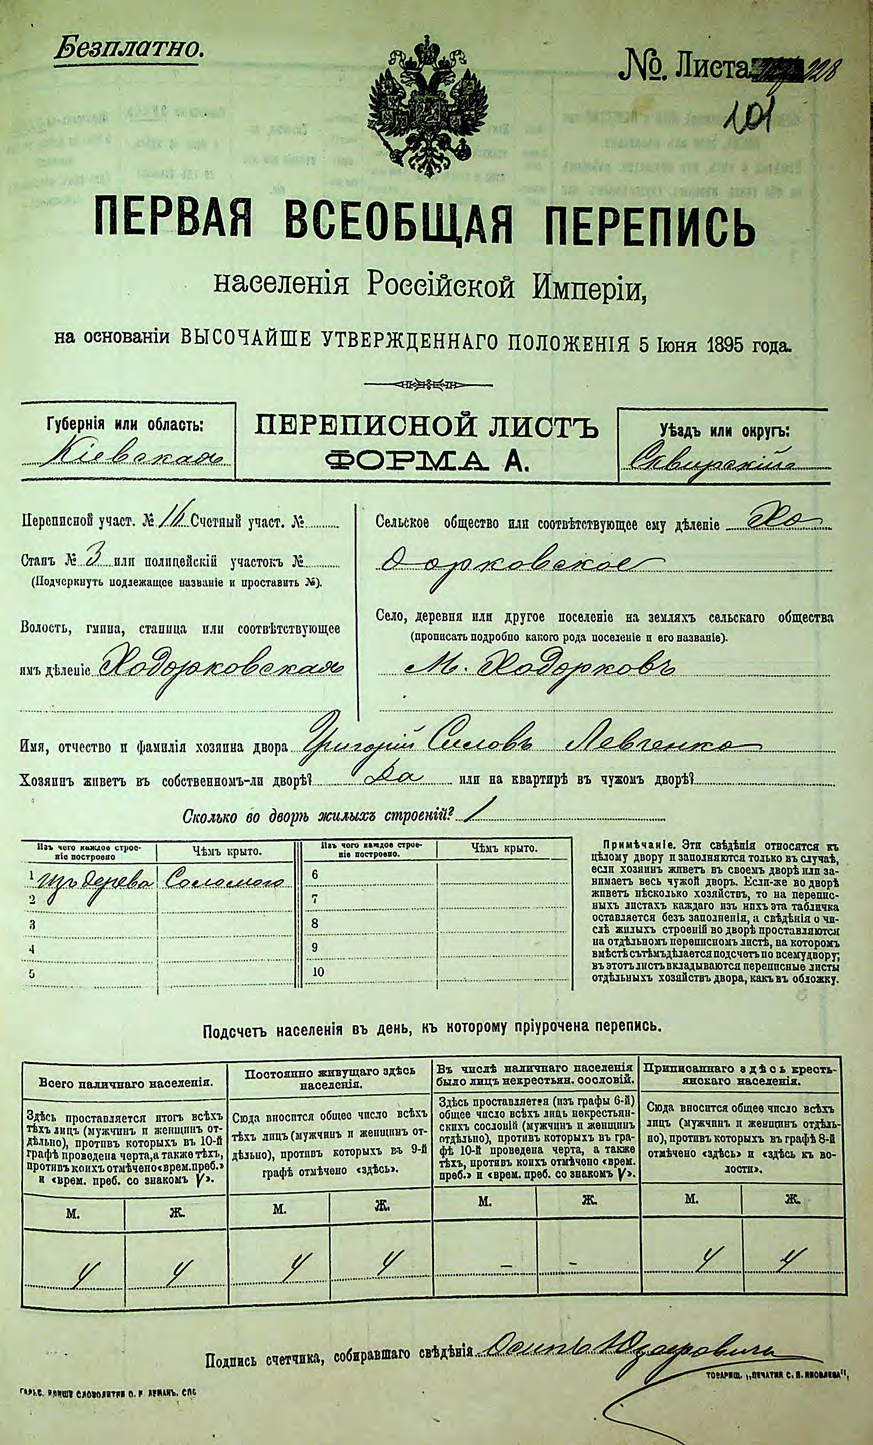 Безплатно.
№. Листа 228
101
ПЕРВАЯ ВСЕОБЩАЯ ПЕРЕПИСЬ
населенія Россійской Имперіи,
на основаніи ВЫСОЧАЙШЕ УТВЕРЖДЕННАГО ПОЛОЖЕНІЯ 5 Іюня 1895 года.
Губернія или область:
Кіевская
ПЕРЕПИСНОЙ ЛИСТЪ
ФОРМА А.
Уѣздъ или округъ:
Сквирскій
Переписной участ. № 16 Счетный участ. №
Станъ № 3 или полицейскій участокъ №
(Подчеркнуть подлежащее названіе и проставить №).
Волость, гмина, станица или соотвѣтствующее
имъ дѣленіе Ходорковская
Сельское общество или соотвѣтствующее ему дѣленіе Хо
дорковское
Село, деревня или другое поселеніе на земляхъ сельскаго общества
(прописать подробно какого рода поселеніе и его названіе).
М. Ходорковъ
Имя, отчество и фамилія хозяина двора Григорій Силовъ Левченко
Хозяинъ живетъ въ собственномъ-ли дворѣ? Да или на квартирѣ въ чужомъ дворѣ?
Сколько во дворѣ жилыхъ строеній? 1
Изъ чего каждое строе-
ніе построено
Чѣмъ крыто.
1 изъ дерева Соломою
2
3
4
5
Изъ чего каждое строе-
ніе построено.
Чѣмъ крыто.
6
7
8
9
10
Примѣчаніе. Эти свѣдѣнія относятся къ
цѣлому двору и заполняются только въ случаѣ,
если хозяинъ живетъ въ своемъ дворѣ или за-
нимаетъ весь чужой дворъ. Если-же во дворѣ
живетъ нѣсколько хозяйствъ, то на перепис-
ныхъ листахъ каждаго изъ нихъ эта табличка
оставляется безъ заполненія, а свѣдѣнія о чи-
слѣ жилыхъ строеній во дворѣ проставляются
на отдѣльномъ переписномъ листѣ, на которомъ
вмѣстѣ съ тѣмъ дѣлается подсчетъ по всему двору;
въ этотъ листъ вкладываются переписные листы
отдѣльныхъ хозяйствъ двора, какъ въ обложку.
Подсчетъ населенія въ день, къ которому пріурочена перепись.
Всего наличнаго населенія.
Здѣсь проставляется итогъ всѣхъ
тѣхъ лицъ (мужчинъ и женщинъ от-
дѣльно), противъ которыхъ въ 10-й
графѣ проведена черта, а также тѣхъ,
противъ коихъ отмѣчено «врем. преб.»
и «врем. преб. со знакомъ V».
М. Ж.
4 4
Постоянно живущаго здѣсь
населенія.
Сюда вносится общее число всѣхъ
тѣхъ лицъ (мужчинъ и женщинъ от-
дѣльно), противъ которыхъ въ 9-й
графѣ отмѣчено «здѣсь».
М. Ж.
4 4
Въ числѣ наличнаго населенія
было лицъ некрестьян. сословій.
Здѣсь проставляется (изъ графы 6-й)
общее число всѣхъ лицъ некрестьян-
скихъ сословій (мужчинъ и женщинъ
отдѣльно), противъ которыхъ въ гра-
фѣ 10-й проведена черта, а также
тѣхъ, противъ коихъ отмѣчено «врем.
преб.» и «врем. преб. со знакомъ V».
М. Ж.
- -
Приписаннаго здѣсь кресть-
янскаго населенія.
Сюда вносится общее число всѣхъ
лицъ (мужчинъ и женщинъ отдѣль-
но), противъ которыхъ въ графѣ 8-й
отмѣчено «здѣсь» и «здѣсь къ во-
лости».
М. Ж.
4 4
Подпись счетчика, собиравшаго свѣдѣнія Осипъ
ТОВАРИЩ. „ПЕЧАТНЯ С. П. ЯКОВЛЕВА",